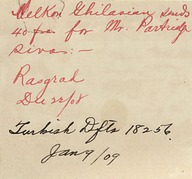 Melkon Ghilasian sends
40 for Mr. Partridge
Sivas:—
Rasgrad
Turkish Dfts 18256.
Jan 9/09